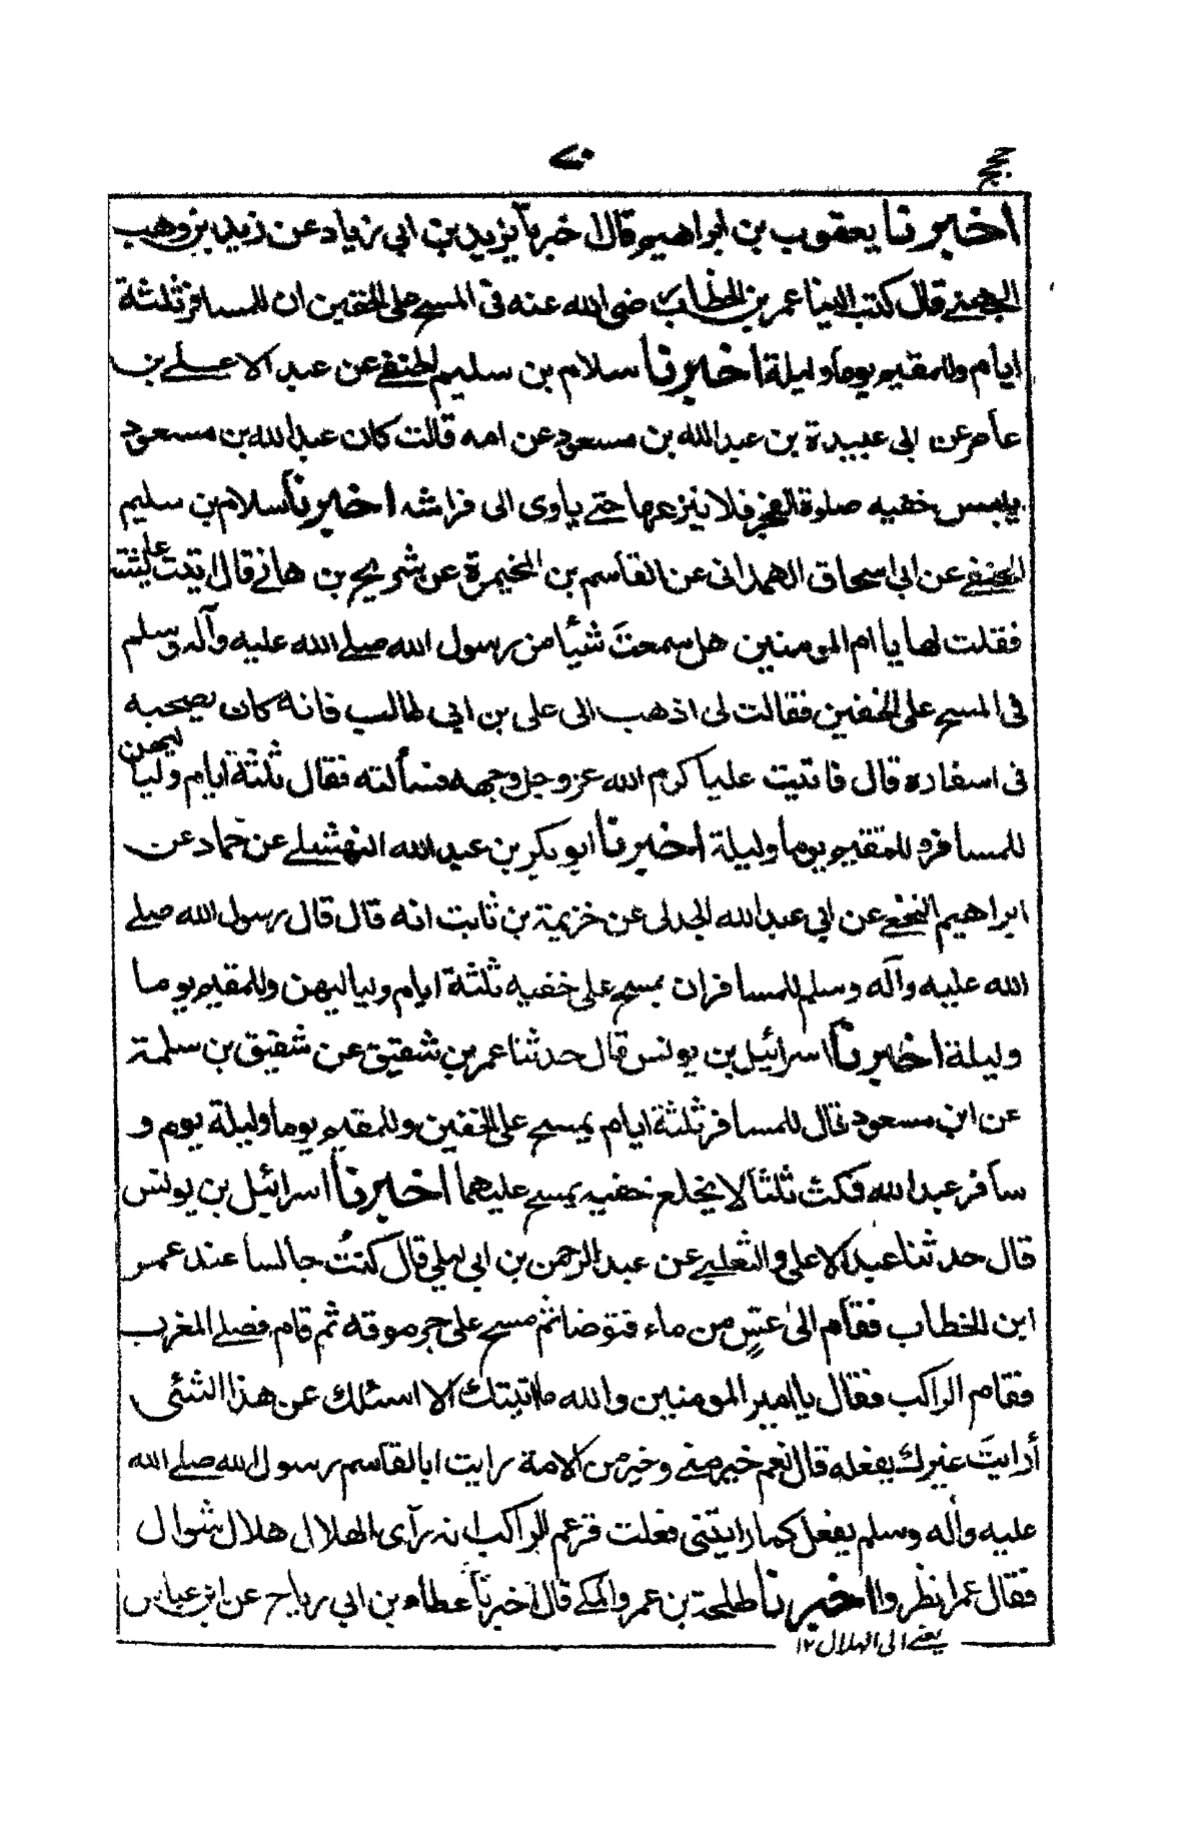 حج
٧٠
اخبرنا يعقوب بن ابراهيم قال اخبرنا يزيد بن ابي زياد عن زيد بن وهب
الجهني قال كتب الينا عمر بن الخطاب رضى الله عنه فى المسح على الخفين ان للمسافر ثلثة
ايام وللمقيم يوما وليلة اخبرنا سلام بن سليم الحنفي عن عبد الاعلى بن
عامر عن ابى عبيدة بن عبد الله بن مسعود عن امه قالت كان عبد الله بن مسعود
يلبس خفيه صلوة الفجر فلا ينزعها حتى ياوى الى فراشه اخبرنا سلام بن سليم
الحنفي عن ابى اسحاق الهمدانى عن القاسم بن المخيمرة عن شريح بن هانى قال اتيت عايشة
فقلت لها يا ام المومنين هل سمعتَ شيئا من رسول الله صلى الله عليه وآله وسلم
فى المسح على الخفين فقالت لى اذهب الى على بن ابى طالب فانه كان يصحبه
فى اسفاره قال فاتيت عليا كرم الله عز وجل وجهه فسألته فقال ثلثة ايام ولياليهن
للمسافر وللمقيم يوما وليلة اخبرنا ابو بكر بن عبد الله النهشلي عن حماد عن
ابراهيم النخعي عن ابى عبد الله الجدلى عن خزيمة بن ثابت انه قال قال رسول الله صلى
الله عليه وآله وسلم للمسافر ان يمسح على خفيه ثلثة ايام ولياليهن وللمقيم يوما
وليلة اخبرنا اسرائيل بن يونس قال حدثنا عمر بن شقيق عن شقيق بن سلمة
عن ابن مسعود قال للمسافر ثلثة ايام يمسح على الخفين وللمقيم يوما وليلة يوم و
سافر عبد الله فمكث ثلثا لا يخلع خفيه يمسح عليهما اخبرنا اسرائيل بن يونس
قال حدثنا عبد الاعلى والثعلبي عن عبد الرحمن بن ابى ليلى قال كنتُ جالسا عند عمر
ابن الخطاب فقام الى عسٍ من ماء فتوضا ثم مسح على جرموقه ثم قام فصلى المغرب
فقام الراكب فقال يا امير المومنين والله ما اتيتك الا اسئلك عن هذا الشئى
أرايتَ غيرك يفعله قال نعم خير منى وخير من الامة رايت ابا القاسم رسول الله صلى الله
عليه وأله وسلم يفعل كما رايتنى فعلت فزعم الراكب انه رآى الهلال هلال شوال
فقال عمر انظروا اخبرنا طلحة بن عمرو المكى قال اخبرنا عطاء بن ابى رباح عن ابن عباس
يعنى الى الهلال ١٢